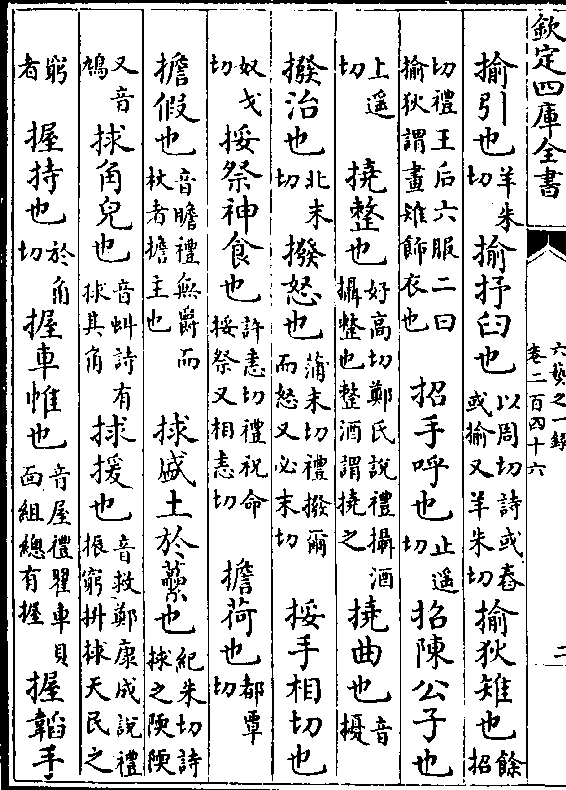 欽定四庫全書
六藝之一錄
卷二百四十六
二
揄引也羊朱切揄抒臼也以周切詩或舂或揄又羊朱切揄狄雉也餘招
切禮王后六服二曰揄狄謂畫雉飾衣也招手呼也止遥切招陳公子也
上遥切撓整也好高切鄭氏説禮攝酒攝整也整酒謂撓之撓曲也音擾
撥治也北末切撥怒也蒲末切禮撥爾而怒又必末切挼手相切也
奴戈切挼祭神食也許恚切禮祝命挼祭又相恚切擔荷也都覃切
擔假也音贍禮無爵而杖者擔主也捄盛土於虆也紀朱切詩捄之陾陾
又音鳩捄角皃也音虯詩有捄其角捄援也音救鄭康成説禮振窮拼捄天民之
窮者握持也於角切握車帷也音屋禮翟車貝面組總有握握韜手